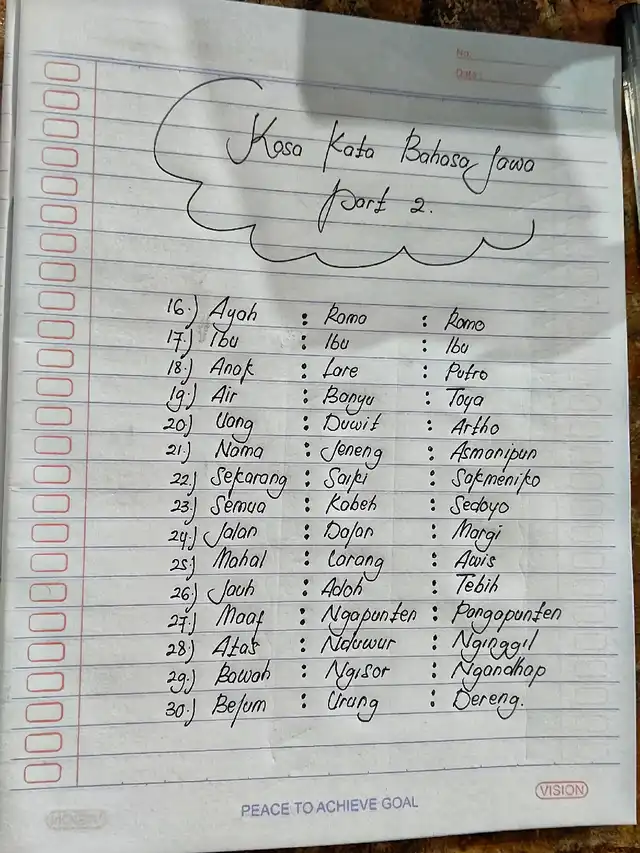 No:
Date:
Kosa Kata Bahasa Jawa
Part 2.
16.) Ayah : Romo : Romo
17.) Ibu : Ibu : Ibu
18.) Anak : Lare : Putro
19.) Air : Banyu : Toya
20.) Uang : Duwit : Artho
21.) Nama : Jeneng : Asmanipun
22.) Sekarang : Saiki : Sakmeniko
23.) Semua : Kabeh : Sedoyo
24.) Jalan : Dalan : Margi
25.) Mahal : Larang : Awis
26.) Jauh : Adoh : Tebih
27.) Maaf : Ngapunten : Pangapunten
28.) Atas : Nduwur : Nginggil
29.) Bawah : Ngisor : Ngandhap
30.) Belum : Urung : Dereng.
PEACE TO ACHIEVE GOAL
VISION